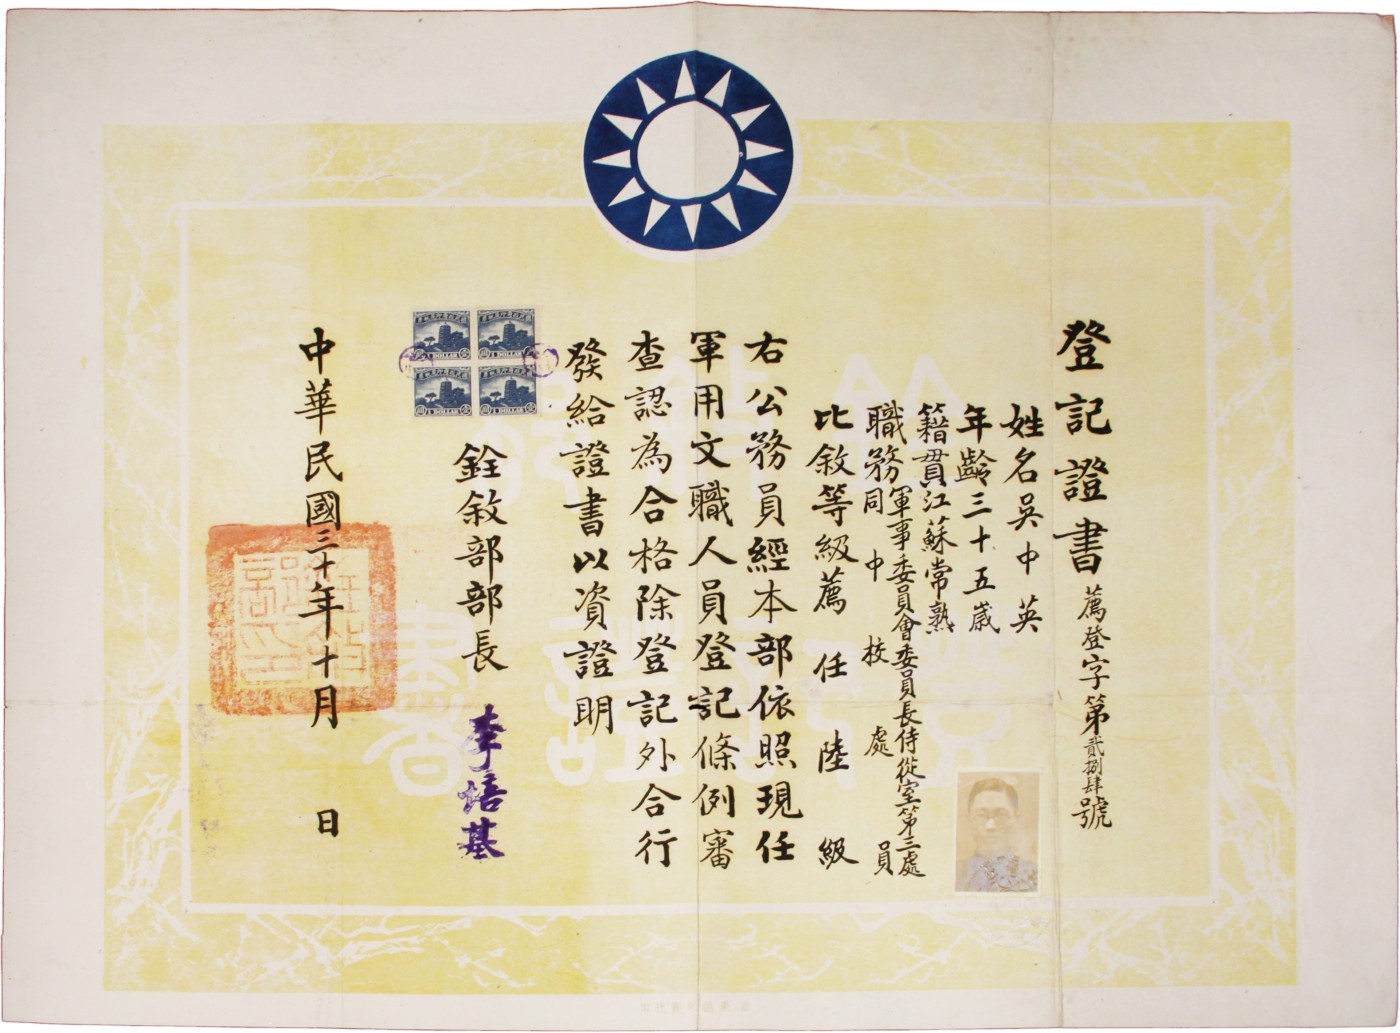 登記證書 薦登字第貳捌肆號
姓名吳中英
年齡三十五歲
籍貫江蘇常熟
職務軍事委員會委員長侍從室第三處
同中校處員
比敘等級薦任陸級
右公務員經本部依照現任
軍用文職人員登記條例審
查認為合格除登記外合行
發給證書以資證明
銓敘部部長 李培基
中華民國三十年十月 日
1 DOLLAR
1 DOLLAR
1 DOLLAR
1 DOLLAR